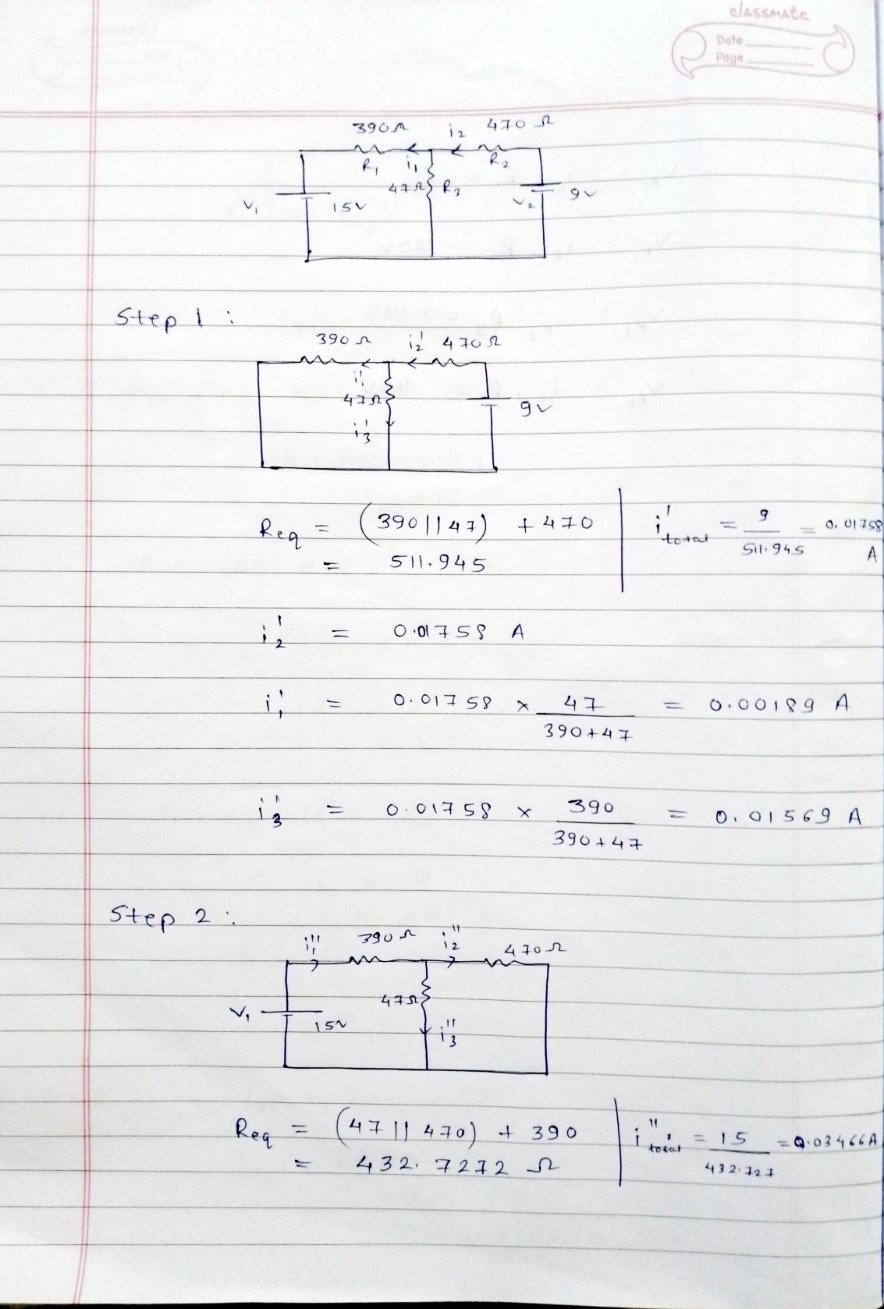 classmate
Date
Page
390Ω i₂ 470 Ω
R₁ i₁ R₂
47Ω R₃
V₁ 15V V₂ 9V
Step 1 :
390 Ω i₂' 470 Ω
i₁'
47Ω
9V
i₃'
Req = (390||47) + 470 | i'total = 9/511.945 = 0.01758 A
= 511.945
i₂' = 0.01758 A
i₁' = 0.01758 × 47/(390+47) = 0.00189 A
i₃' = 0.01758 × 390/(390+47) = 0.01569 A
Step 2 :
i₁'' 390 Ω i₂'' 470 Ω
47Ω
V₁ 15V i₃''
Req = (47 || 470) + 390 | i''total = 15/432.727 = 0.03466A
= 432.7272 Ω